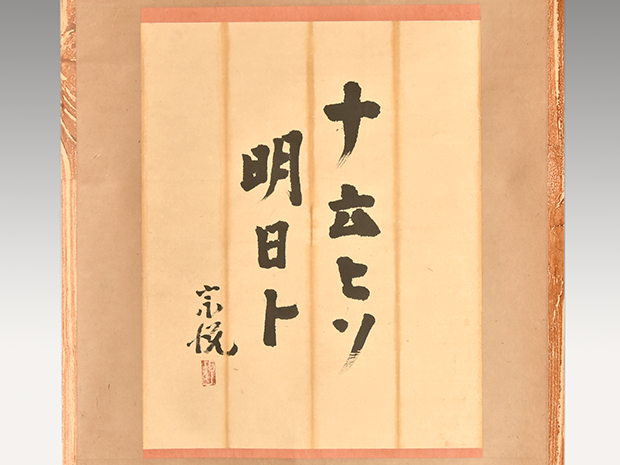 ナ云ヒソ
明日ト
宗悦